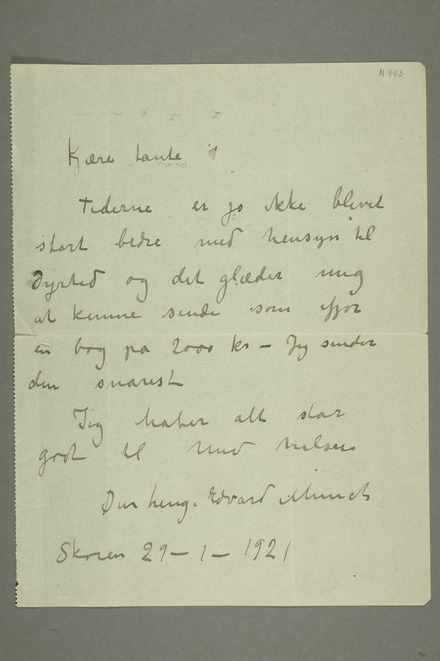 N 993
Kjære tante
Tiderne er jo ikke blevet
stort bedre med hensyn til
Dyrtid og det glæder mig
at kunne sende som ifjor
en bog på 2000 kr – Jeg sender
den snarest
Jeg håber alt står
godt til Med hilsen
Din heng. Edvard Munch
Skøien 29–1–1921